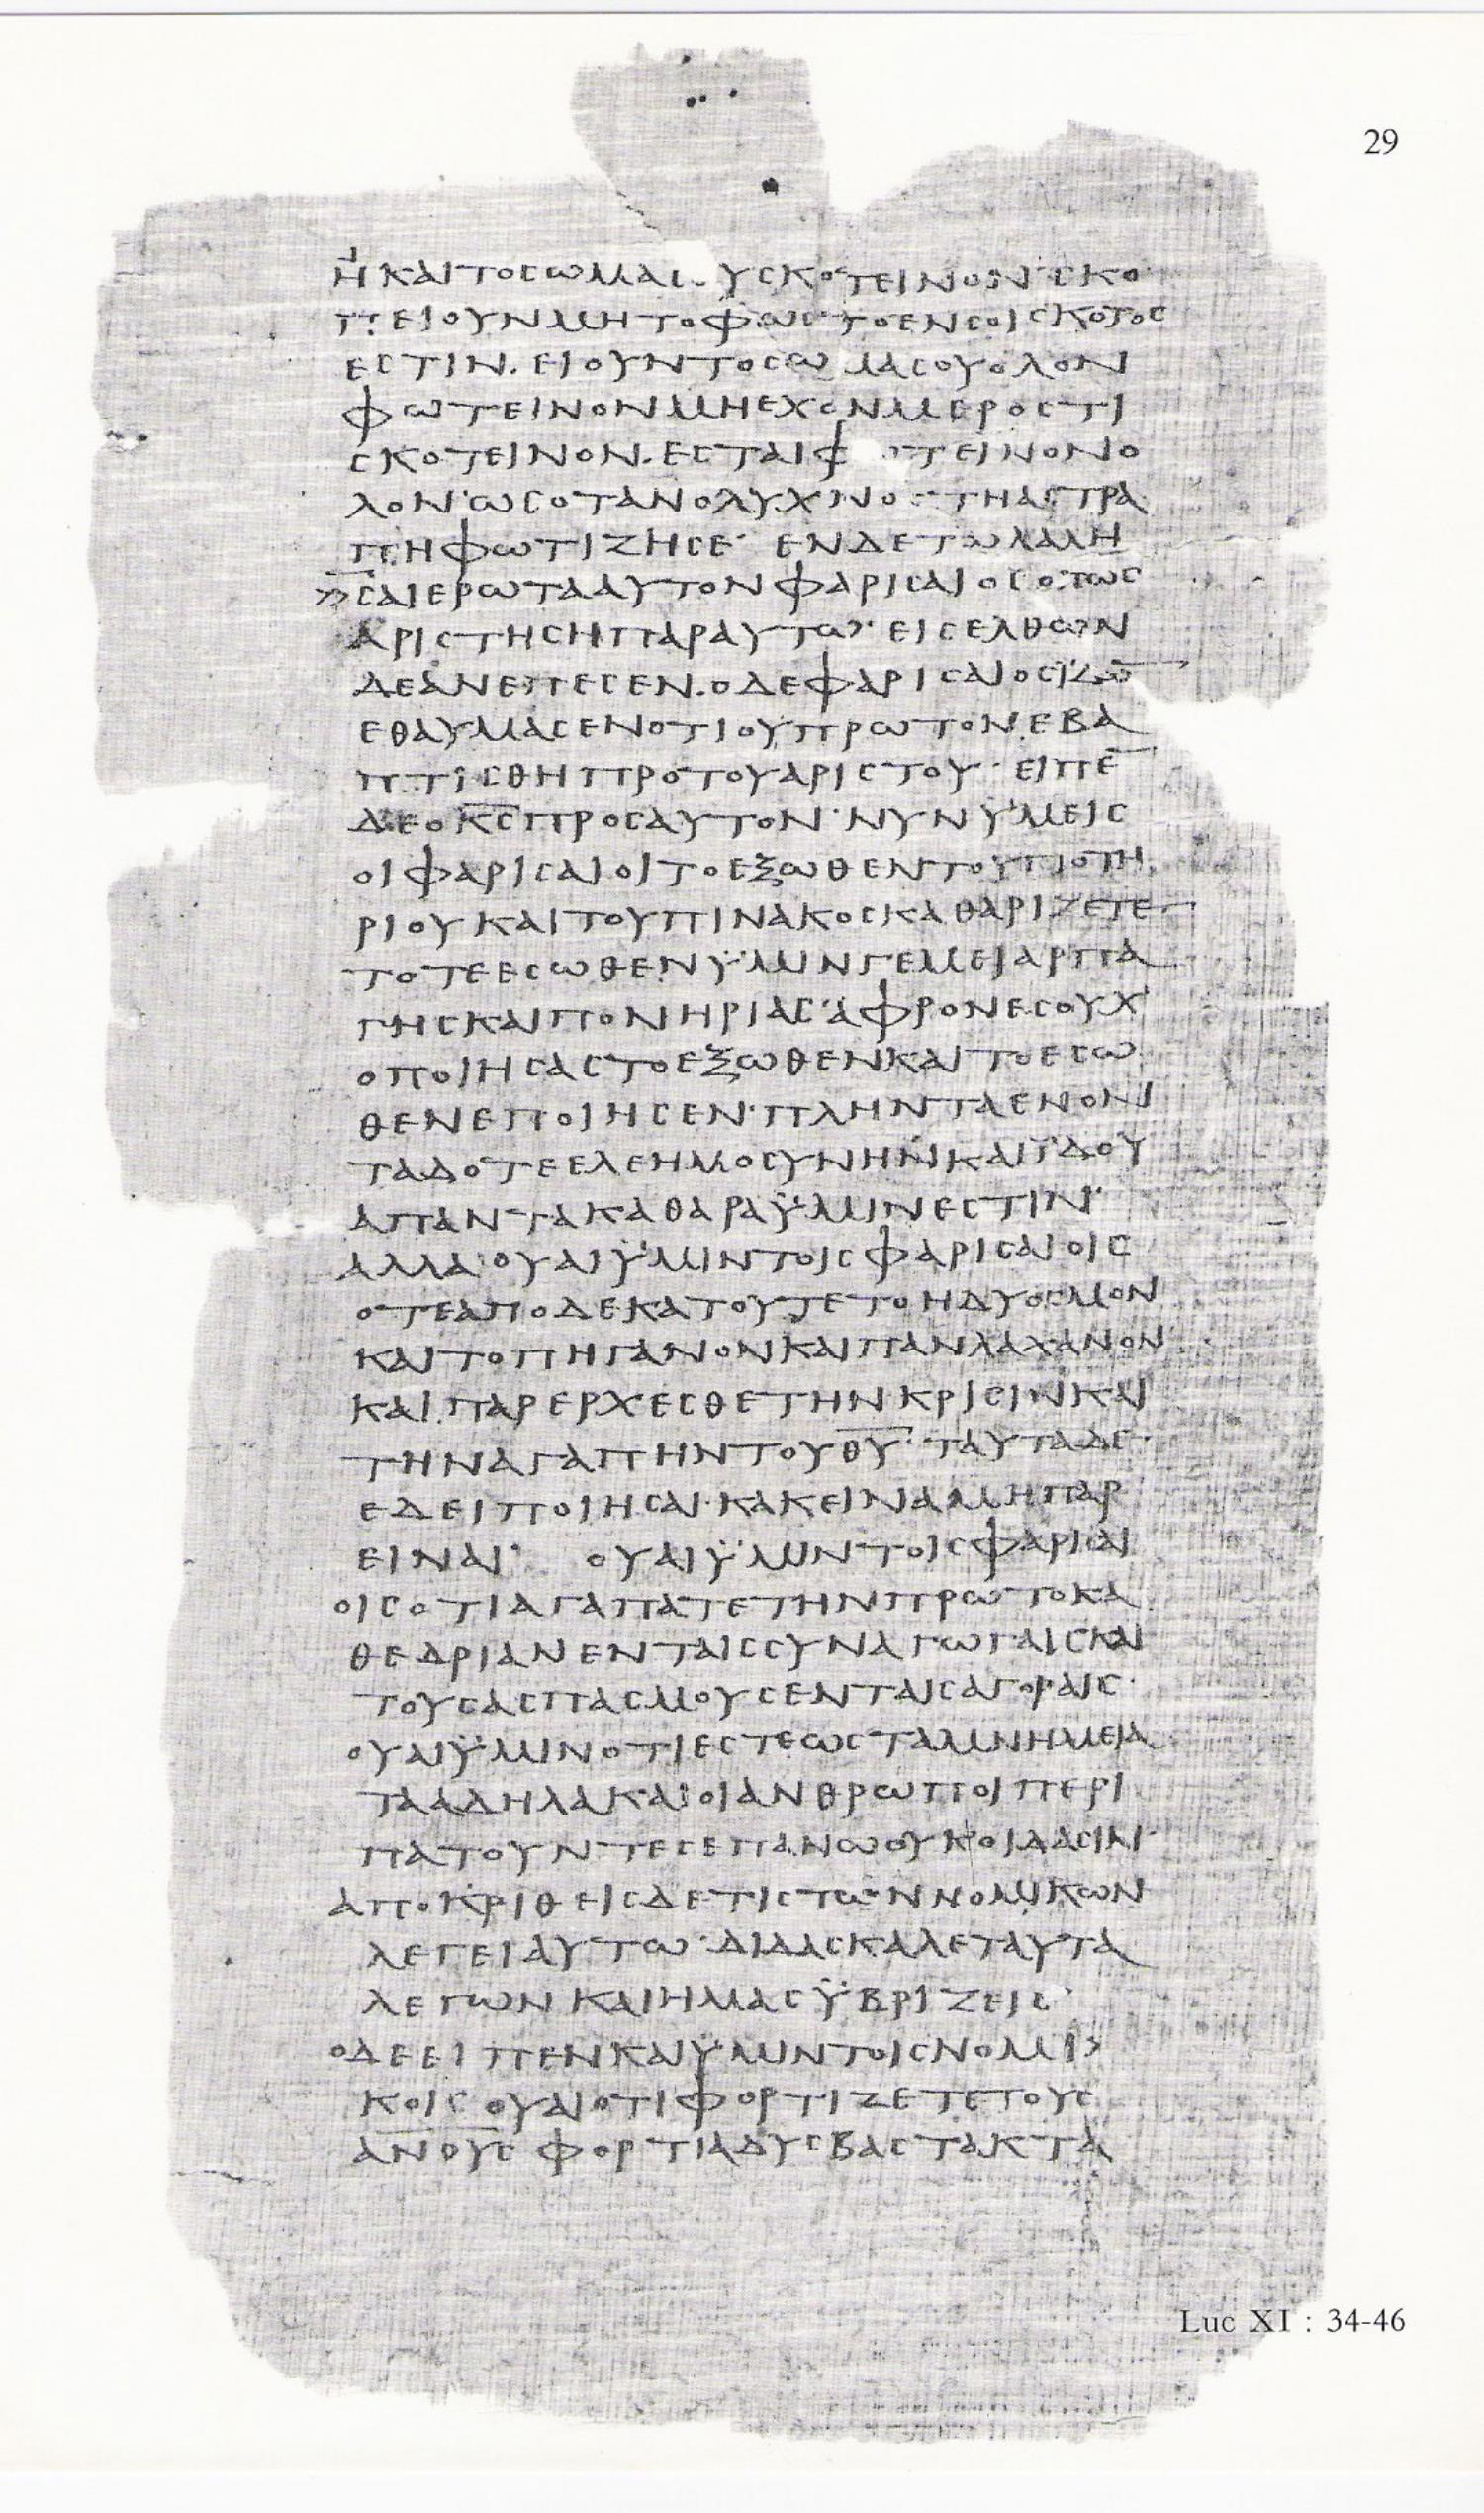 29
Η ΚΑΙΤΟСΩΜΑС ΥСΚΟΤΕΙΝΟΝ·СΚΟ
ΠΕΙΟΥΝΜΗΤΟΦΩСΤΟΕΝСΟΙСΚΟΤΟС
ΕСΤΙΝ·ΕΙΟΥΝΤΟСΩΜΑСΟΥΟΛΟΝ
ΦΩΤΕΙΝΟΝΜΗΕΧΟΝΜΕΡΟСΤΙ
СΚΟΤΕΙΝΟΝ·ΕСΤΑΙΦ ΤΕΙΝΟΝΟ
ΛΟΝ·ΩСΟΤΑΝΟΛΥΧΝΟСΤΗΑСΤΡΑ
ΠΗΦΩΤΙΖΗСΕ· ΕΝΔΕΤΩΛΑΛΗ
»СΑΙΕΡΩΤΑΑΥΤΟΝΦΑΡΙСΑΙΟСΟΠΩС
ΑΡΙСΤΗСΗΠΑΡΑΥΤΩ·ΕΙСΕΛΘΩΝ
ΔΕΑΝΕΠΕСΕΝ·ΟΔΕΦΑΡΙСΑΙΟСΪΔΩ̅
ΕΘΑΥΜΑСΕΝΟΤΙΟΥΠΡΩΤΟΝΕΒΑ
ΠΤΙСΘΗΠΡΟΤΟΥΑΡΙСΤΟΥ· ΕΙΠΕ̅
ΔΕΟΚ̅С̅ΠΡΟСΑΥΤΟΝ·ΝΥΝΫΜΕΙС
ΟΙΦΑΡΙСΑΙΟΙΤΟΕΞΩΘΕΝΤΟΥΠΟΤΗ
ΡΙΟΥΚΑΙΤΟΥΠΙΝΑΚΟСΚΑΘΑΡΙΖΕΤΕ
ΤΟΤΕΕСΩΘΕΝΫΜΙΝΓΕΜΕΙΑΡΠΑ
ΓΗСΚΑΙΠΟΝΗΡΙΑС·ΑΦΡΟΝΕСΟΥΧ
ΟΠΟΙΗСΑСΤΟΕΞΩΘΕΝΚΑΙΤΟΕСΩ
ΘΕΝΕΠΟΙΗСΕΝ·ΠΛΗΝΤΑΕΝΟΝ
ΤΑΔΟΤΕΕΛΕΗΜΟСΥΝΗΝΚΑΙΪΔΟΥ
ΑΠΑΝΤΑΚΑΘΑΡΑΫΜΙΝΕСΤΙΝ·
ΑΛΛΑ ΟΥΑΙΫΜΙΝΤΟΙСΦΑΡΙСΑΙΟΙС
ΟΤΕΑΠΟΔΕΚΑΤΟΥΤΕΤΟΗΔΥΟСΜΟΝ
ΚΑΙΤΟΠΗΓΑΝΟΝΚΑΙΠΑΝΛΑΧΑΝΟΝ
ΚΑΙΠΑΡΕΡΧΕСΘΕΤΗΝΚΡΙСΙΝΚΑΙ
ΤΗΝΑΓΑΠΗΝΤΟΥΘ̅Υ̅·ΤΑΥΤΑΔΕ·
ΕΔΕΙΠΟΙΗСΑΙ·ΚΑΚΕΙΝΑΜΗΠΑΡ
ΕΙΝΑΙ· ΟΥΑΙΫΜΙΝΤΟΙСΦΑΡΙСΑΙ
ΟΙСΟΤΙΑΓΑΠΑΤΕΤΗΝΠΡΩΤΟΚΑ
ΘΕΔΡΙΑΝΕΝΤΑΙССΥΝΑΓΩΓΑΙСΚΑΙ
ΤΟΥСΑСΠΑСΜΟΥСΕΝΤΑΙСΑΓΟΡΑΙС·
ΟΥΑΙΫΜΙΝΟΤΙΕСΤΕΩСΤΑΜΝΗΜΕΙΑ
ΤΑΑΔΗΛΑΚΑΙΟΙΑΝΘΡΩΠΟΙΠΕΡΙ
ΠΑΤΟΥΝΤΕСΕΠΑΝΩΟΥΚΟΙΔΑСΙΝ·
ΑΠΟΚΡΙΘΕΙСΔΕΤΙСΤΩΝΝΟΜΙΚΩΝ
ΛΕΓΕΙΑΥΤΩ·ΔΙΔΑСΚΑΛΕΤΑΥΤΑ
ΛΕΓΩΝΚΑΙΗΜΑСΫΒΡΙΖΕΙС·
ΟΔΕΕΙΠΕΝΚΑΙΫΜΙΝΤΟΙСΝΟΜΙ>
ΚΟΙСΟΥΑΙΟΤΙΦΟΡΤΙΖΕΤΕΤΟΥС
Α̅Ν̅Ο̅Υ̅С̅ΦΟΡΤΙΑΔΥСΒΑСΤΑΚΤΑ
Luc XI : 34-46